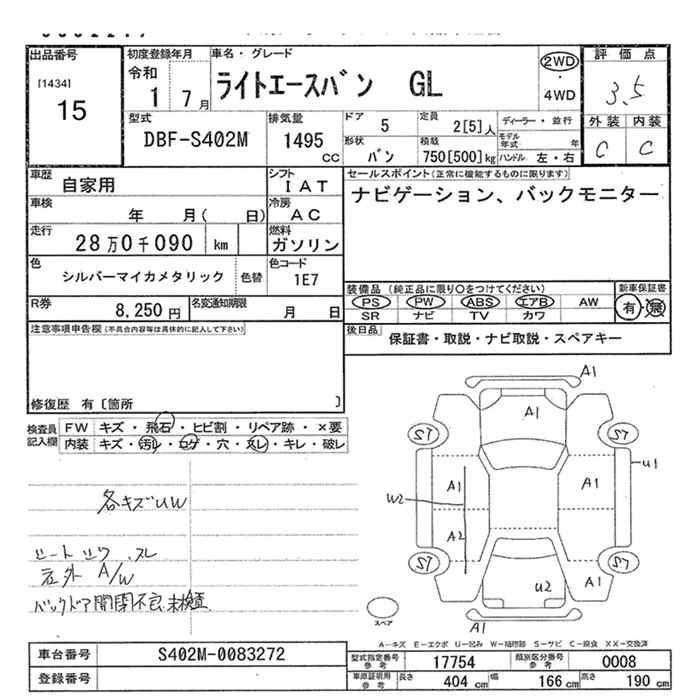 出品番号
[1434]
15
初度登録年月
令和
1 7月
車名・グレード
ライトエースバン GL
2WD
・
4WD
評価点
3.5
外装 内装
C C
型式
DBF-S402M
排気量
1495
CC
ドア 5
形状 バン
定員 2[5]人
積載 750[500]kg
ディーラー・並行
モデル年式 年
ハンドル 左・右
車歴
自家用
シフト
I A T
車検
年 月( 日)
冷房
A C
走行
28万0千090 km
燃料
ガソリン
色
シルバーマイカメタリック
色替
色コード
1E7
R券
8,250円
名変通知期限
月 日
セールスポイント(正常に機能するものに限ります)
ナビゲーション、バックモニター
装備品(純正品に限り○をつけてください)
PS PW ABS エアB AW
SR ナビ TV カワ
新車保証書
有・無
後日品
保証書・取説・ナビ取説・スペアキー
注意事項申告欄(不具合内容等は具体的に記入して下さい)
修復歴 有〔箇所 〕
検査員記入欄
FW キズ・飛石・ヒビ割・リペア跡・×要
内装 キズ・汚レ・コゲ・穴・スレ・キレ・破レ
各キズUW
シートシワ.スレ
荷外 A/W
バックドア開閉不良.未検査
A1
A1
S7
S7
A1
A1
U1
W2
A2
S7
S7
U2
A1
A1
スペア
A-キズ E-エクボ U-凹み W-補修跡 S-サビ C-腐食 XX-交換済
車台番号
S402M-0083272
登録番号
型式指定番号
参考
17754
類別区分番号
参考
0008
車庫証明用
参考
長さ 404 cm
幅 166 cm
高さ 190 cm